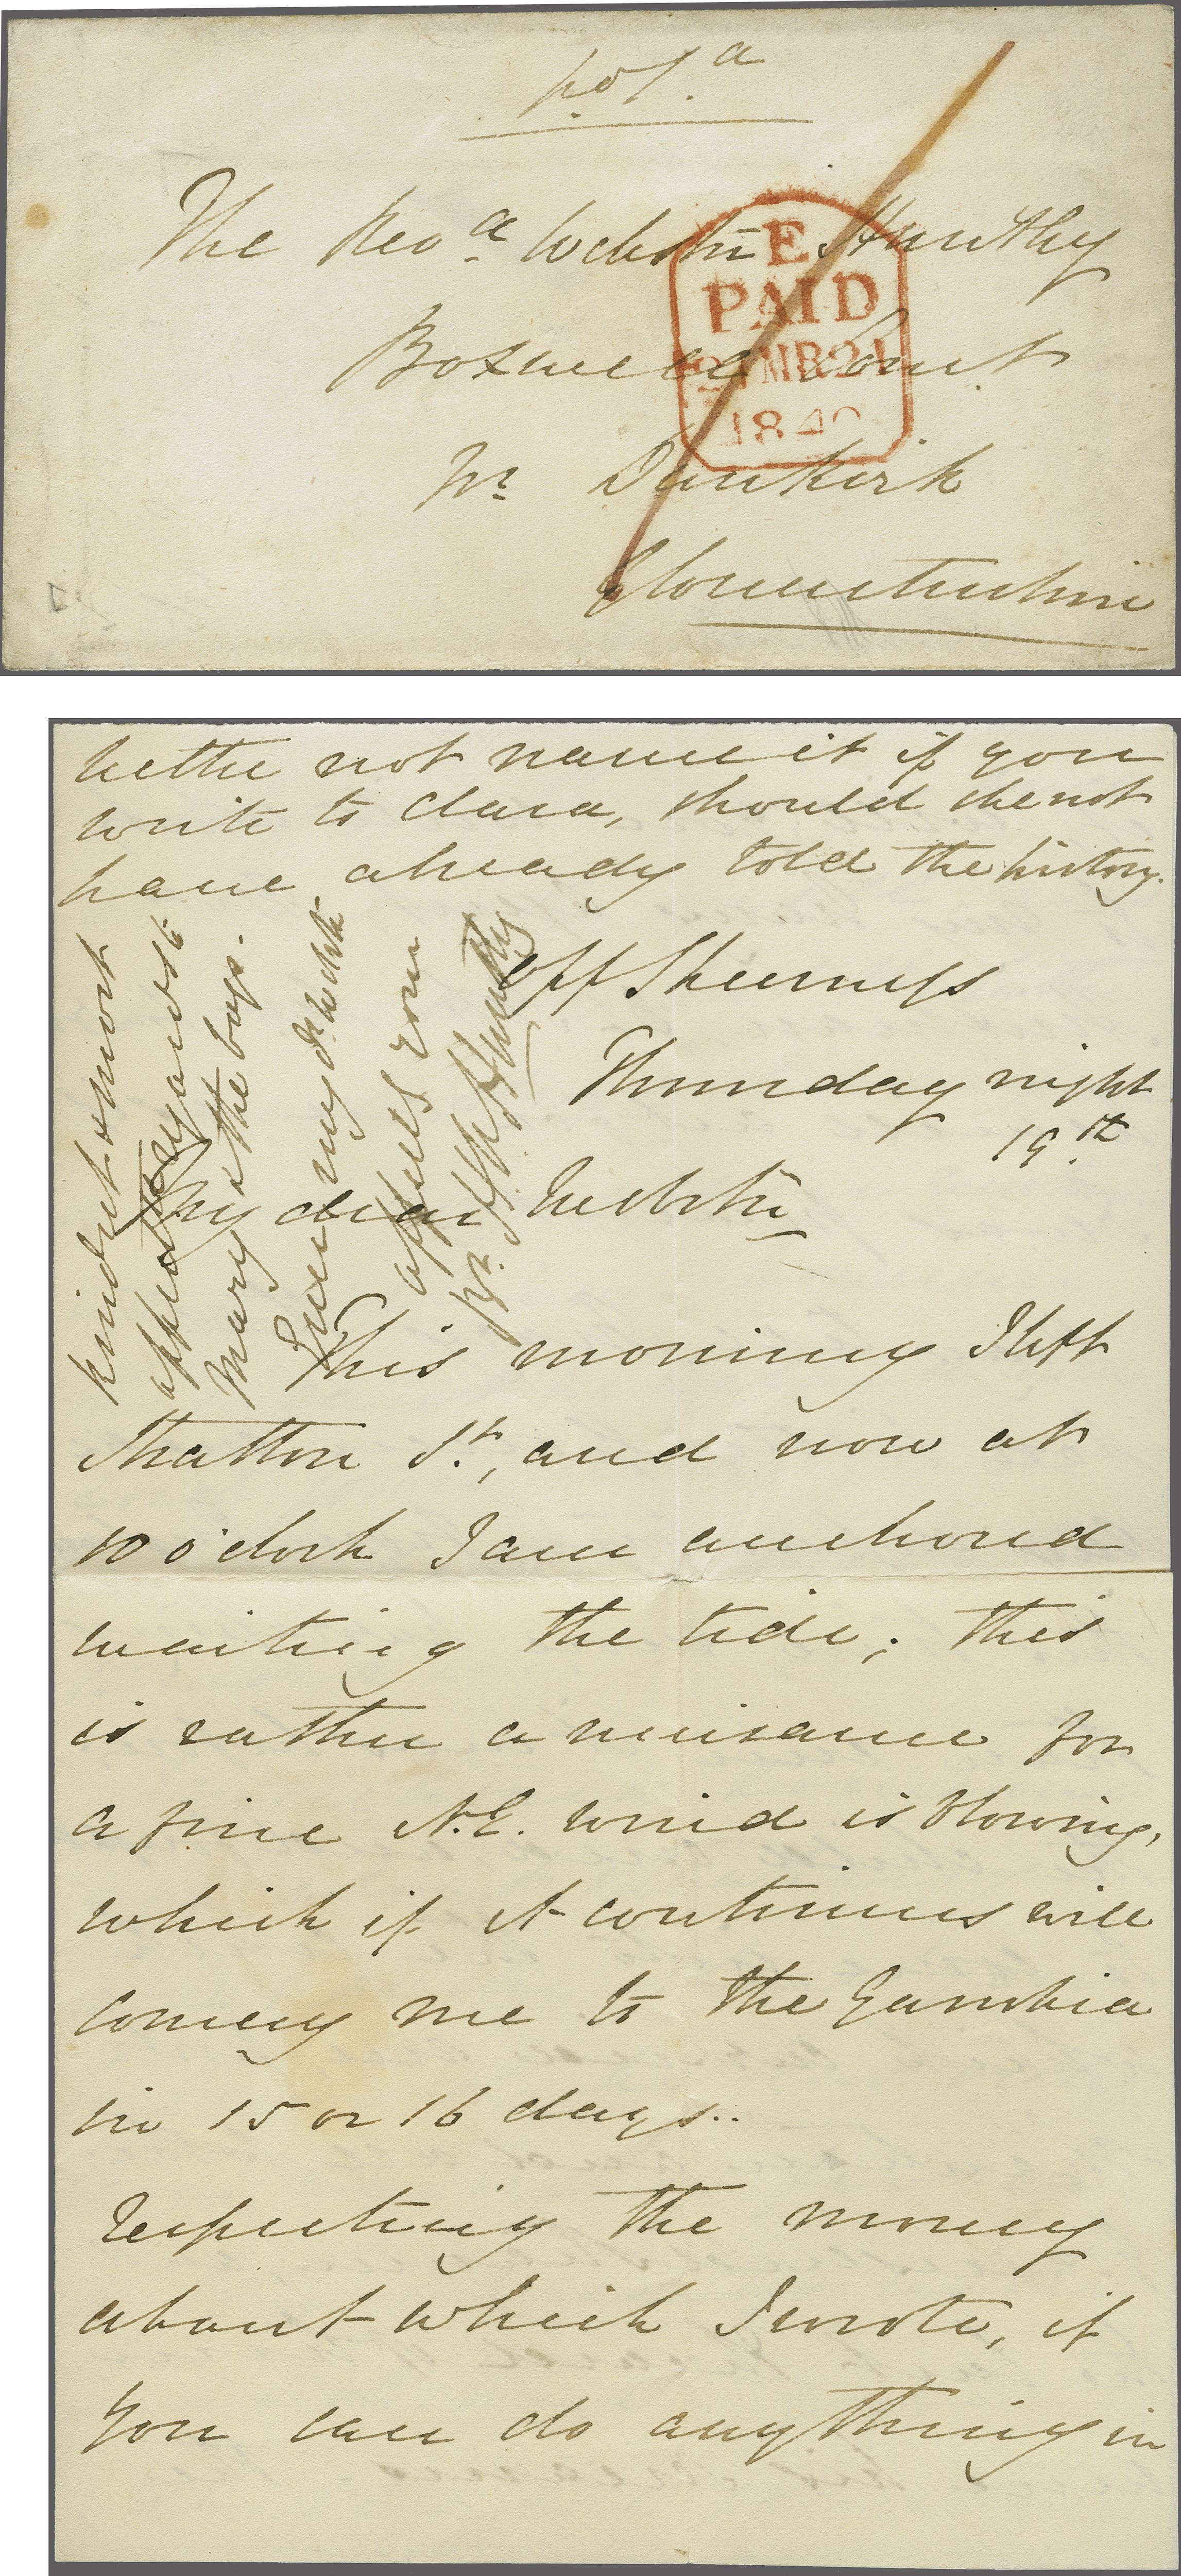 p.d
The Rev.d Webster Huntley
Boxwell Court
Nr Dunkirk
Gloucestershire
E
PAID
21 MR 21
1840
better not name it if you
write to Clara, should she not
have already told the history.
kindest & most
affectionate
Mary & the boys.
Ever my dr Webster
affect Bror
H. Huntley
off Sheerness
Thursday night
19.th
My dear Webster
This morning I left
Stratton St., and now at
10 o'clock I am anchored
waiting the tide; this
is rather a nuisance for
a fine N.E. wind is blowing,
which if it continues will
convey me to the Gambia
in 15 or 16 days..
Respecting the money
about which I wrote, if
you can do anything in